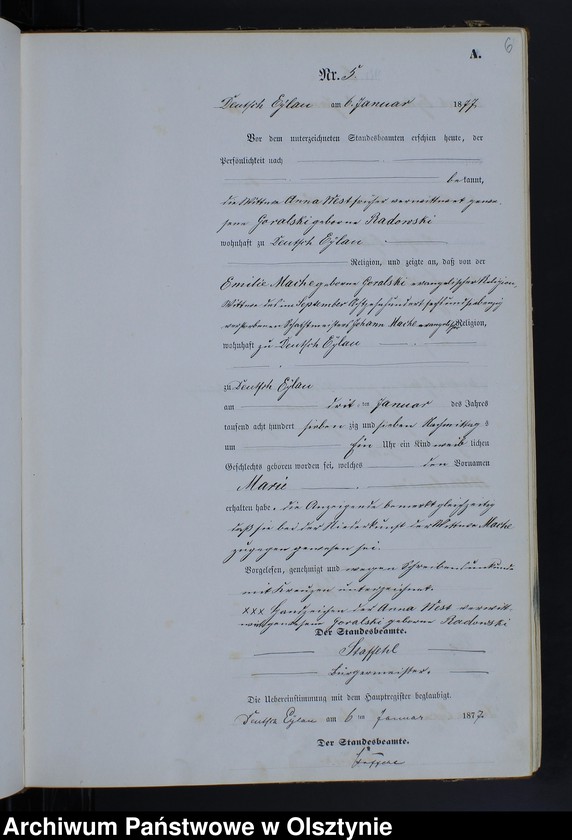 6
A.
Nr. 5.
Deutsch Eylau am 6. Januar 1877.
Vor dem unterzeichneten Standesbeamten erschien heute, der
Persönlichkeit nach
bekannt,
die Wittwe Anna West früher verwittwet gewe-
sene Goralski geborne Radowski
wohnhaft zu Deutsch Eylau
Religion, und zeigte an, daß von der
Emilie Mache geborne Goralski evangelischer Religion,
Wittwe des im September Achtzehnhundert sechsundsiebenzig
verstorbenen Schachtmeisters Johann Mache evangelischer Religion,
wohnhaft zu Deutsch Eylau
zu Deutsch Eylau
am drit ten Januar des Jahres
tausend acht hundert sieben zig und sieben Nachmittags
um Ein Uhr ein Kind weib lichen
Geschlechts geboren worden sei, welches den Vornamen
Marie
erhalten habe. Die Anzeigende bemerkt gleichzeitig
daß sie bei der Niederkunft der Wittwe Mache
zugegen gewesen sei.
Vorgelesen, genehmigt und wegen Schreibensunkunde
mit Kreuzen unterzeichnet.
XXX Handzeichen der Anna West verwitt-
wet gewesene Goralski geborne Radowski
Der Standesbeamte.
Staffehl
Bürgermeister.
Die Uebereinstimmung mit dem Hauptregister beglaubigt.
Deutsch Eylau am 6 ten Januar 1877.
Der Standesbeamte.
Archiwum Państwowe w Olsztynie